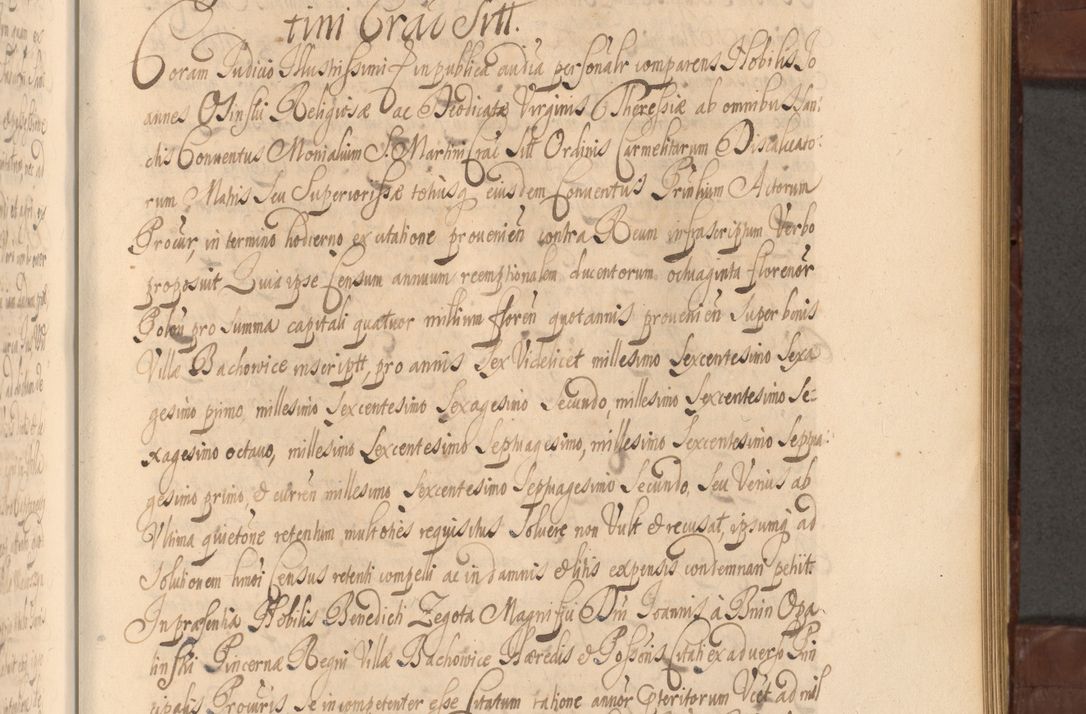 tini Crac Sitt.
Coram Judicio Illustrissimi & in publica audia personalr comparens Nobilis Jo
annes Olinski Religiosæ ac Deodicatæ Virginis Theressiæ ab omnibus San:
ctis Conventus Monialium S. Martini Crac Sitt Ordinis Carmelitarum Discalceato:
rum Matris Seu Superiorissæ totiusq eiusdem Conventus Prinlium Actorum
Procur, in termino hodierno ex citatione provenien contra Reum infrascriptum Verbo
proposuit Quia ipse Censum annuum reemptionalem ducentorum octuaginta florenor
Polon pro summa capitali quatuor millium floren quotannis provenien Super bonis
Villæ Bachowice inscriptt, pro annis Sex Videlicet millesimo Sexcentesimo Sexa
gesimo primo, millesimo Sexcentesimo Sexagesimo Secundo, millesimo Sexcentesimo Se=
xagesimo octavo, millesimo Sexcentesimo Septuagesimo, millesimo Sexcentesimo Septua:
gesimo primo, & curren millesimo Sexcentesimo Septuagesimo Secundo, Seu Verius ab
Vltima quietone retentum multoties requisitus Solvere non Vult & recusat, ipsumq ad
Solutionem hmoi Census retenti compelli ac in damnis & litis expensis condemnari petiit.
In præsentia Nobilis Benedicti Zegota Magnifici Dni Joannis à Bnin Opa
linski Pincernæ Regni Villæ Bachowice Hæredis & Possoris Citati ex adverso Prin
cipalis Procuris Se incompetenter esse Citatum ratione annor præteritorum Vcet ad mill